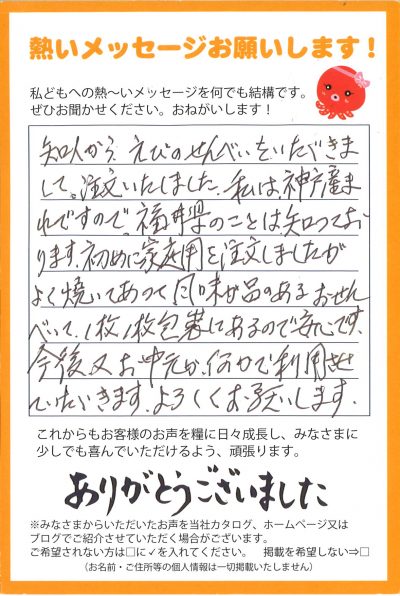 熱いメッセージお願いします！
私どもへの熱〜いメッセージを何でも結構です。
ぜひお聞かせください。おねがいします！
知人から、えびのせんべいをいただきま
して。注文いたしました。私は、神戸産ま
れですので、福井県のことは、知っており
ります。初めに家庭用を注文しましたが
よく焼いてあって風味が品のあるおせん
べいで、1枚1枚包装にあるので安心です。
今後又お中元か、何かで利用させ
ていただきます。よろしくお願いします。
これからもお客様のお声を糧に日々成長し、みなさまに
少しでも喜んでいただけるよう、頑張ります。
ありがとうございました
※みなさまからいただいたお声を当社カタログ、ホームページ又は
ブログでご紹介させていただく場合がございます。
ご希望されない方は□に✓を入れてください。 掲載を希望しない⇒□
（お名前・ご住所等の個人情報は一切掲載いたしません）